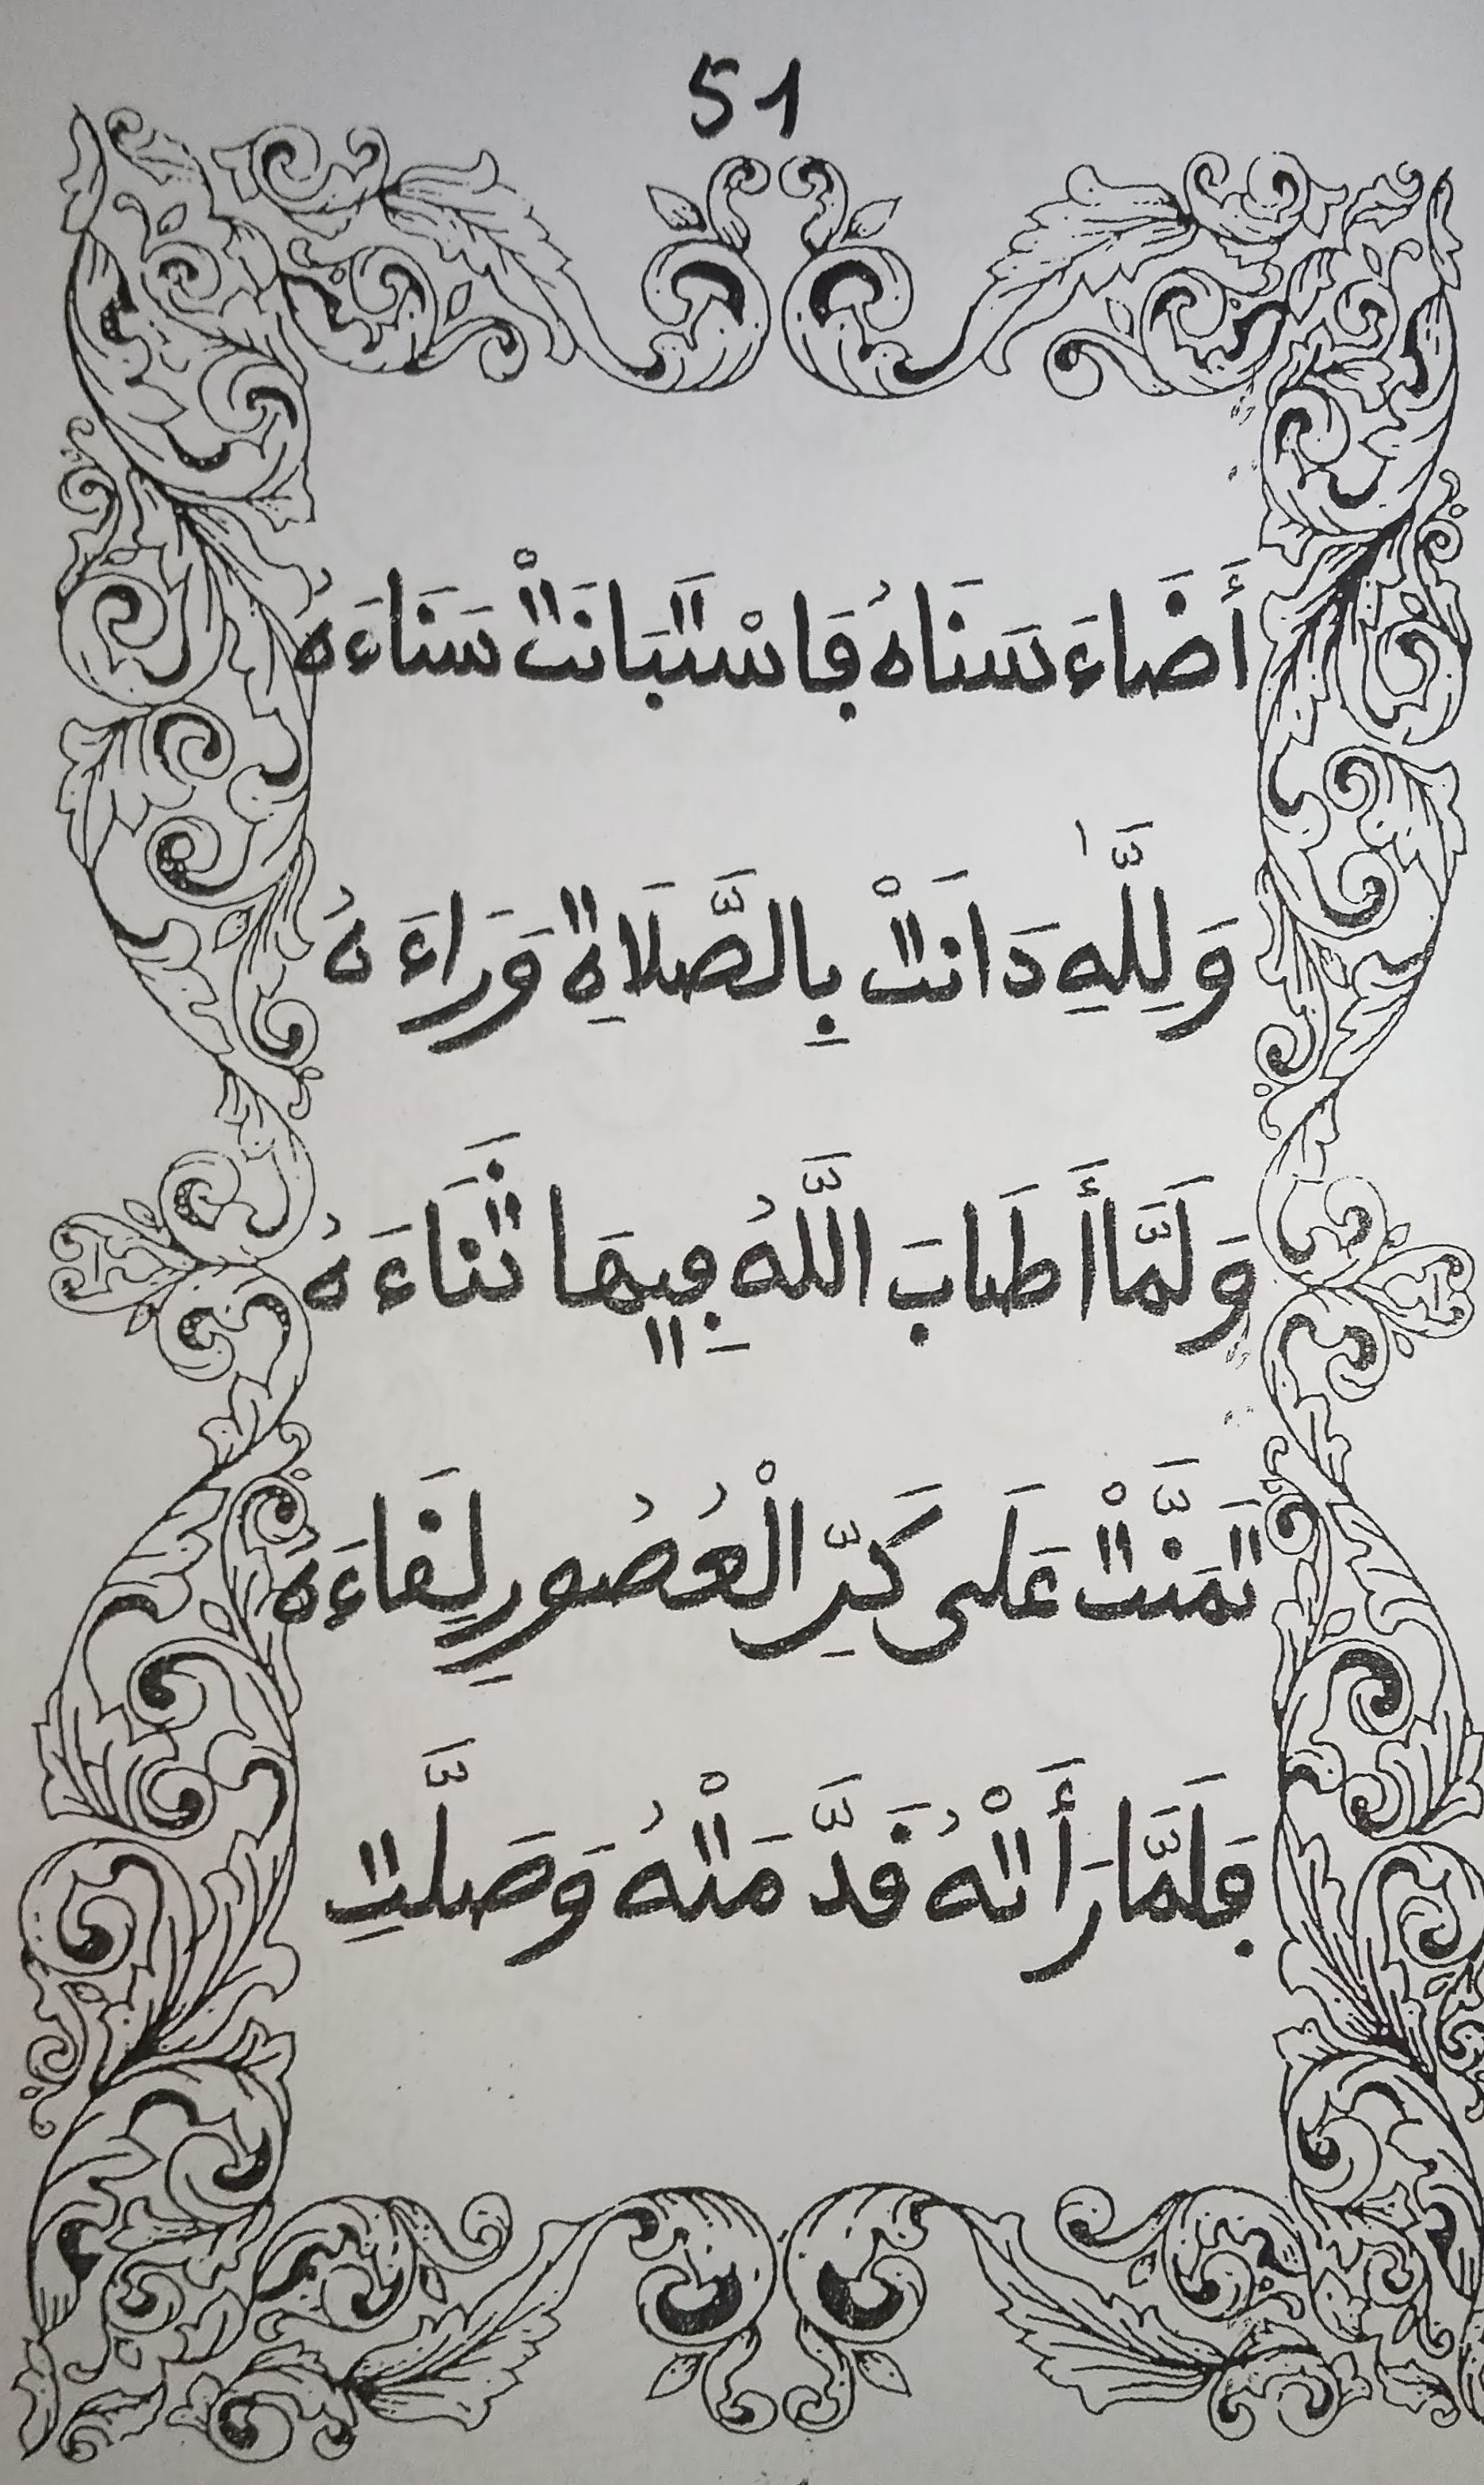 51
أَضَاءَ سَنَاهُ فَاسْتَبَانَتْ سَنَاءَهُ
وَلِلَّهِ دَانَتْ بِالصَّلَاةِ وَرَاءَهُ
وَلَمَّا أَطَابَ اللَّهُ فِيهَا ثَنَاءَهُ
تَمَنَّتْ عَلَى كَرِّ الْعُصُورِ لِقَاءَهُ
فَلَمَّا رَأَتْهُ قَدَّمَتْهُ وَصَلَّتِ